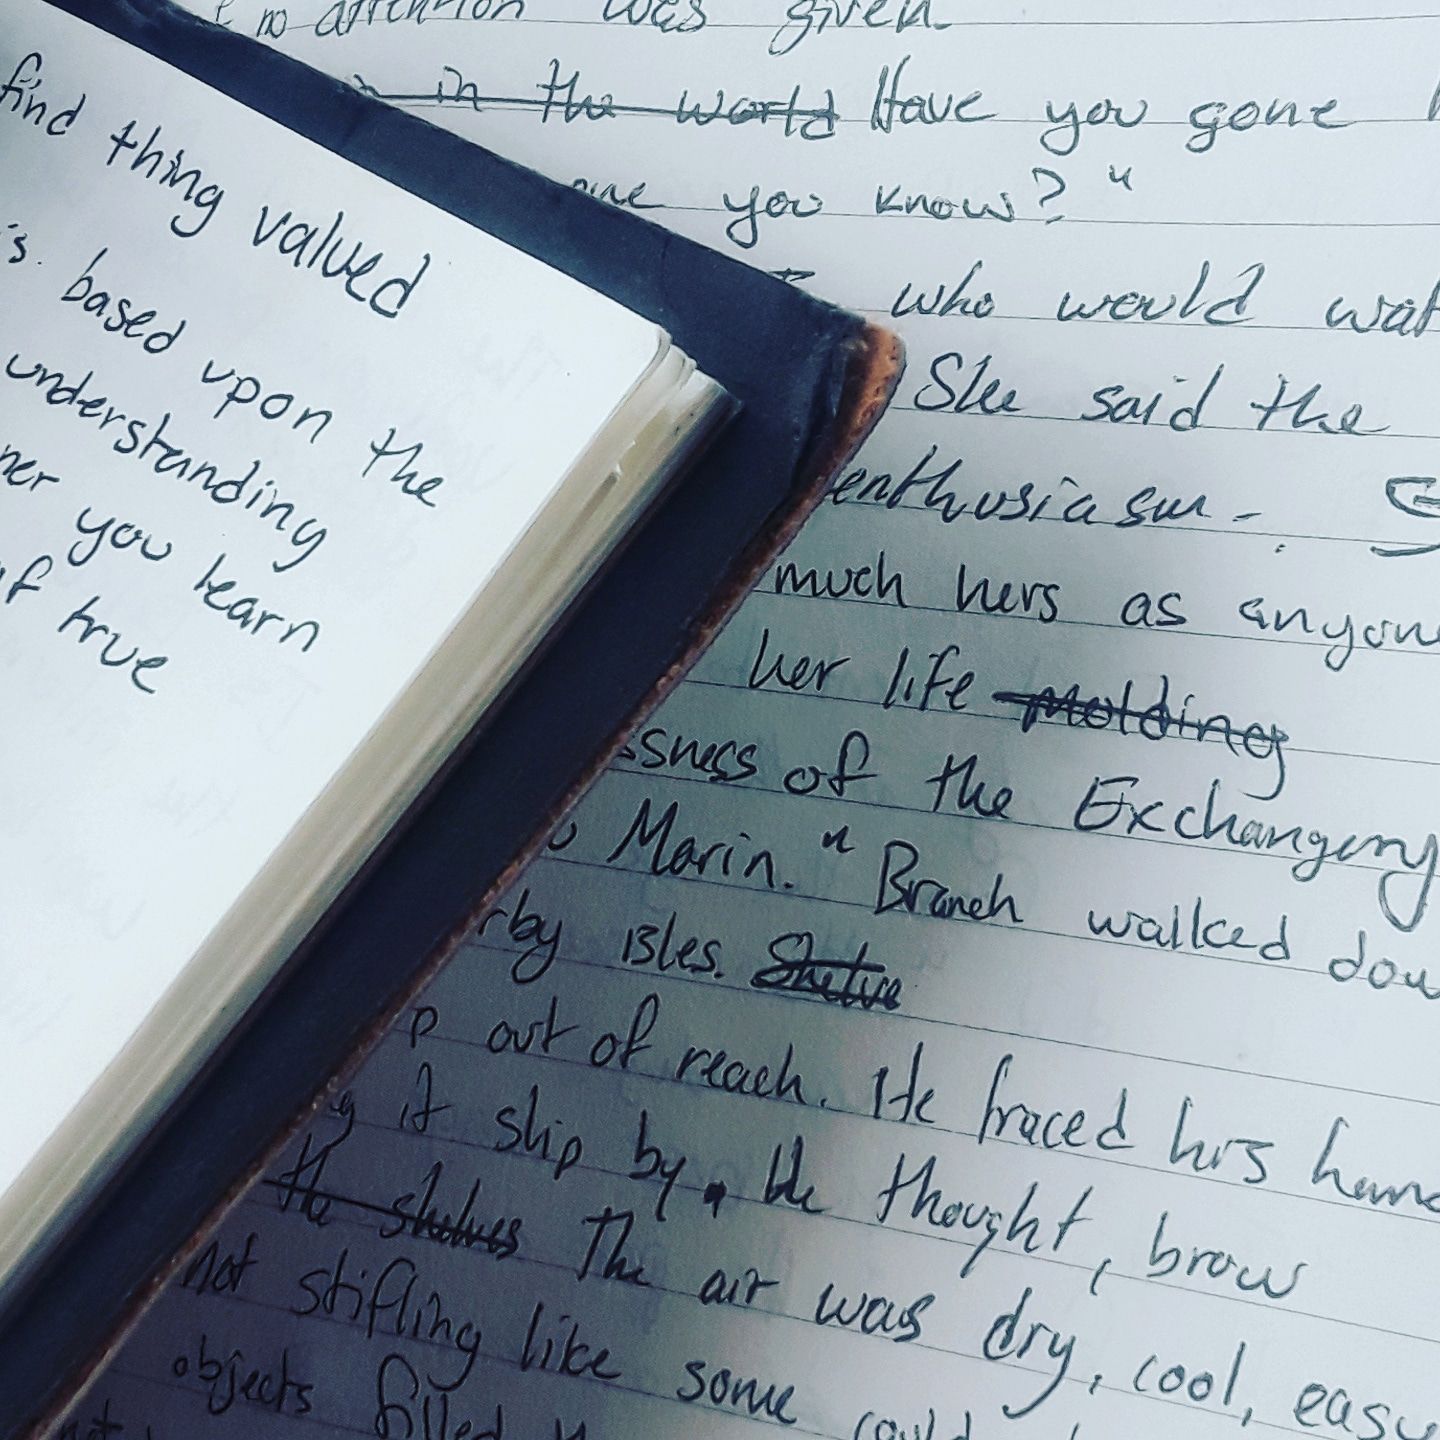 find thing valued
is. based upon the
understanding
ner you learn
of true
no attention was given.
in the world Have you gone
you know?"
who would wat
She said the
enthusiasm.
much hers as anyone
her life molding
ssness of the Exchangery
Marin." Branch walked dow
rby isles. Shelve
p out of reach. He traced his hand
g it slip by. He thought, brow
the shelves The air was dry, cool, easy
not stifling like some could
objects filled